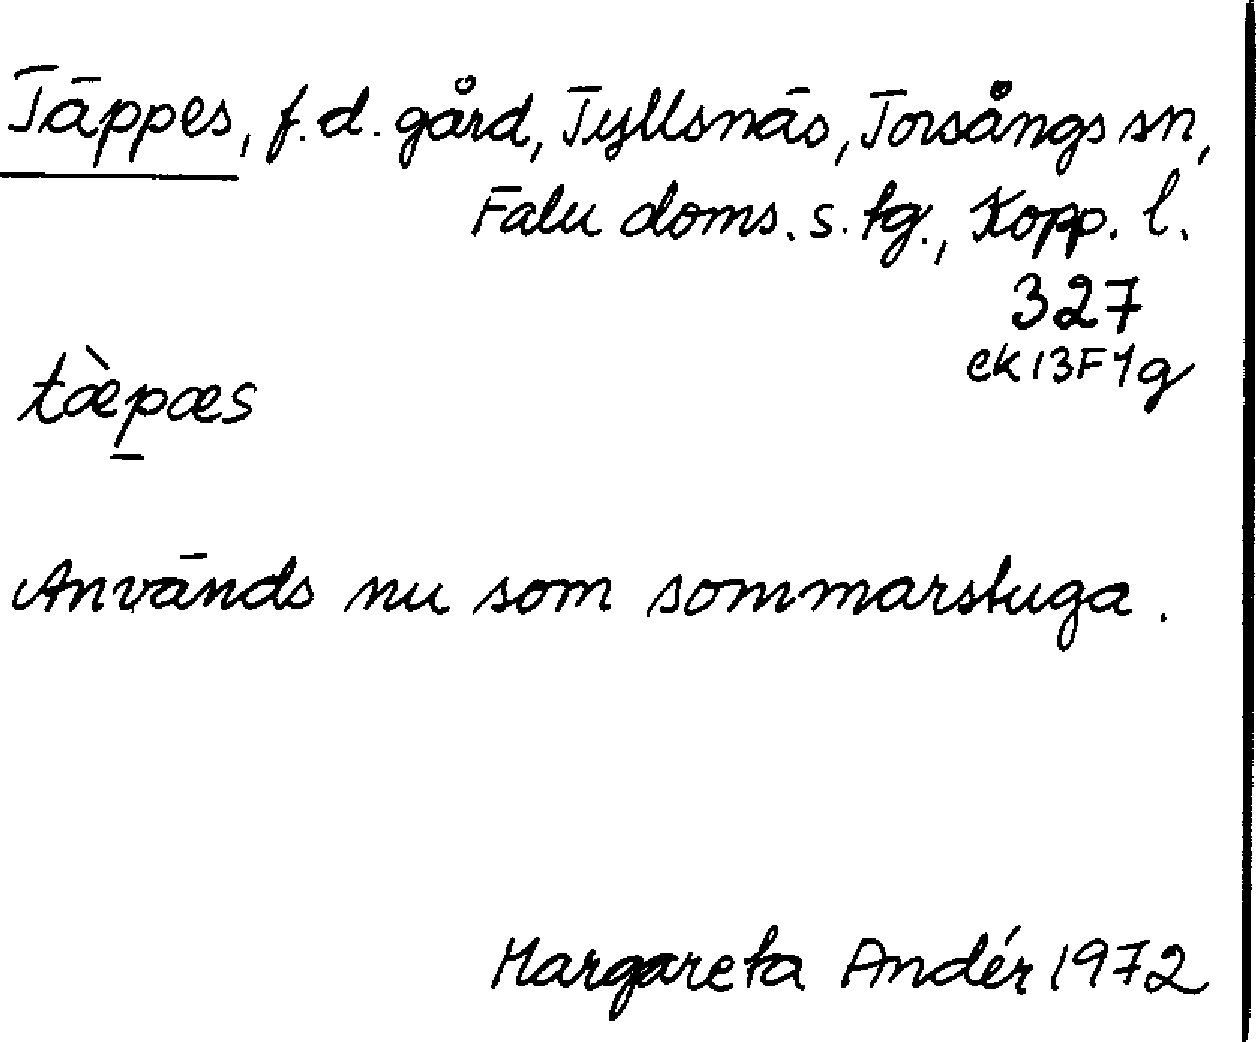 Täppes, f.d. gård, Tyllsnäs, Torsångs sn,
Falu doms. s. tg., Kopp. l.
327
ek 13F1g
tæ̀p̠æs
Används nu som sommarstuga.
Margareta Andér 1972